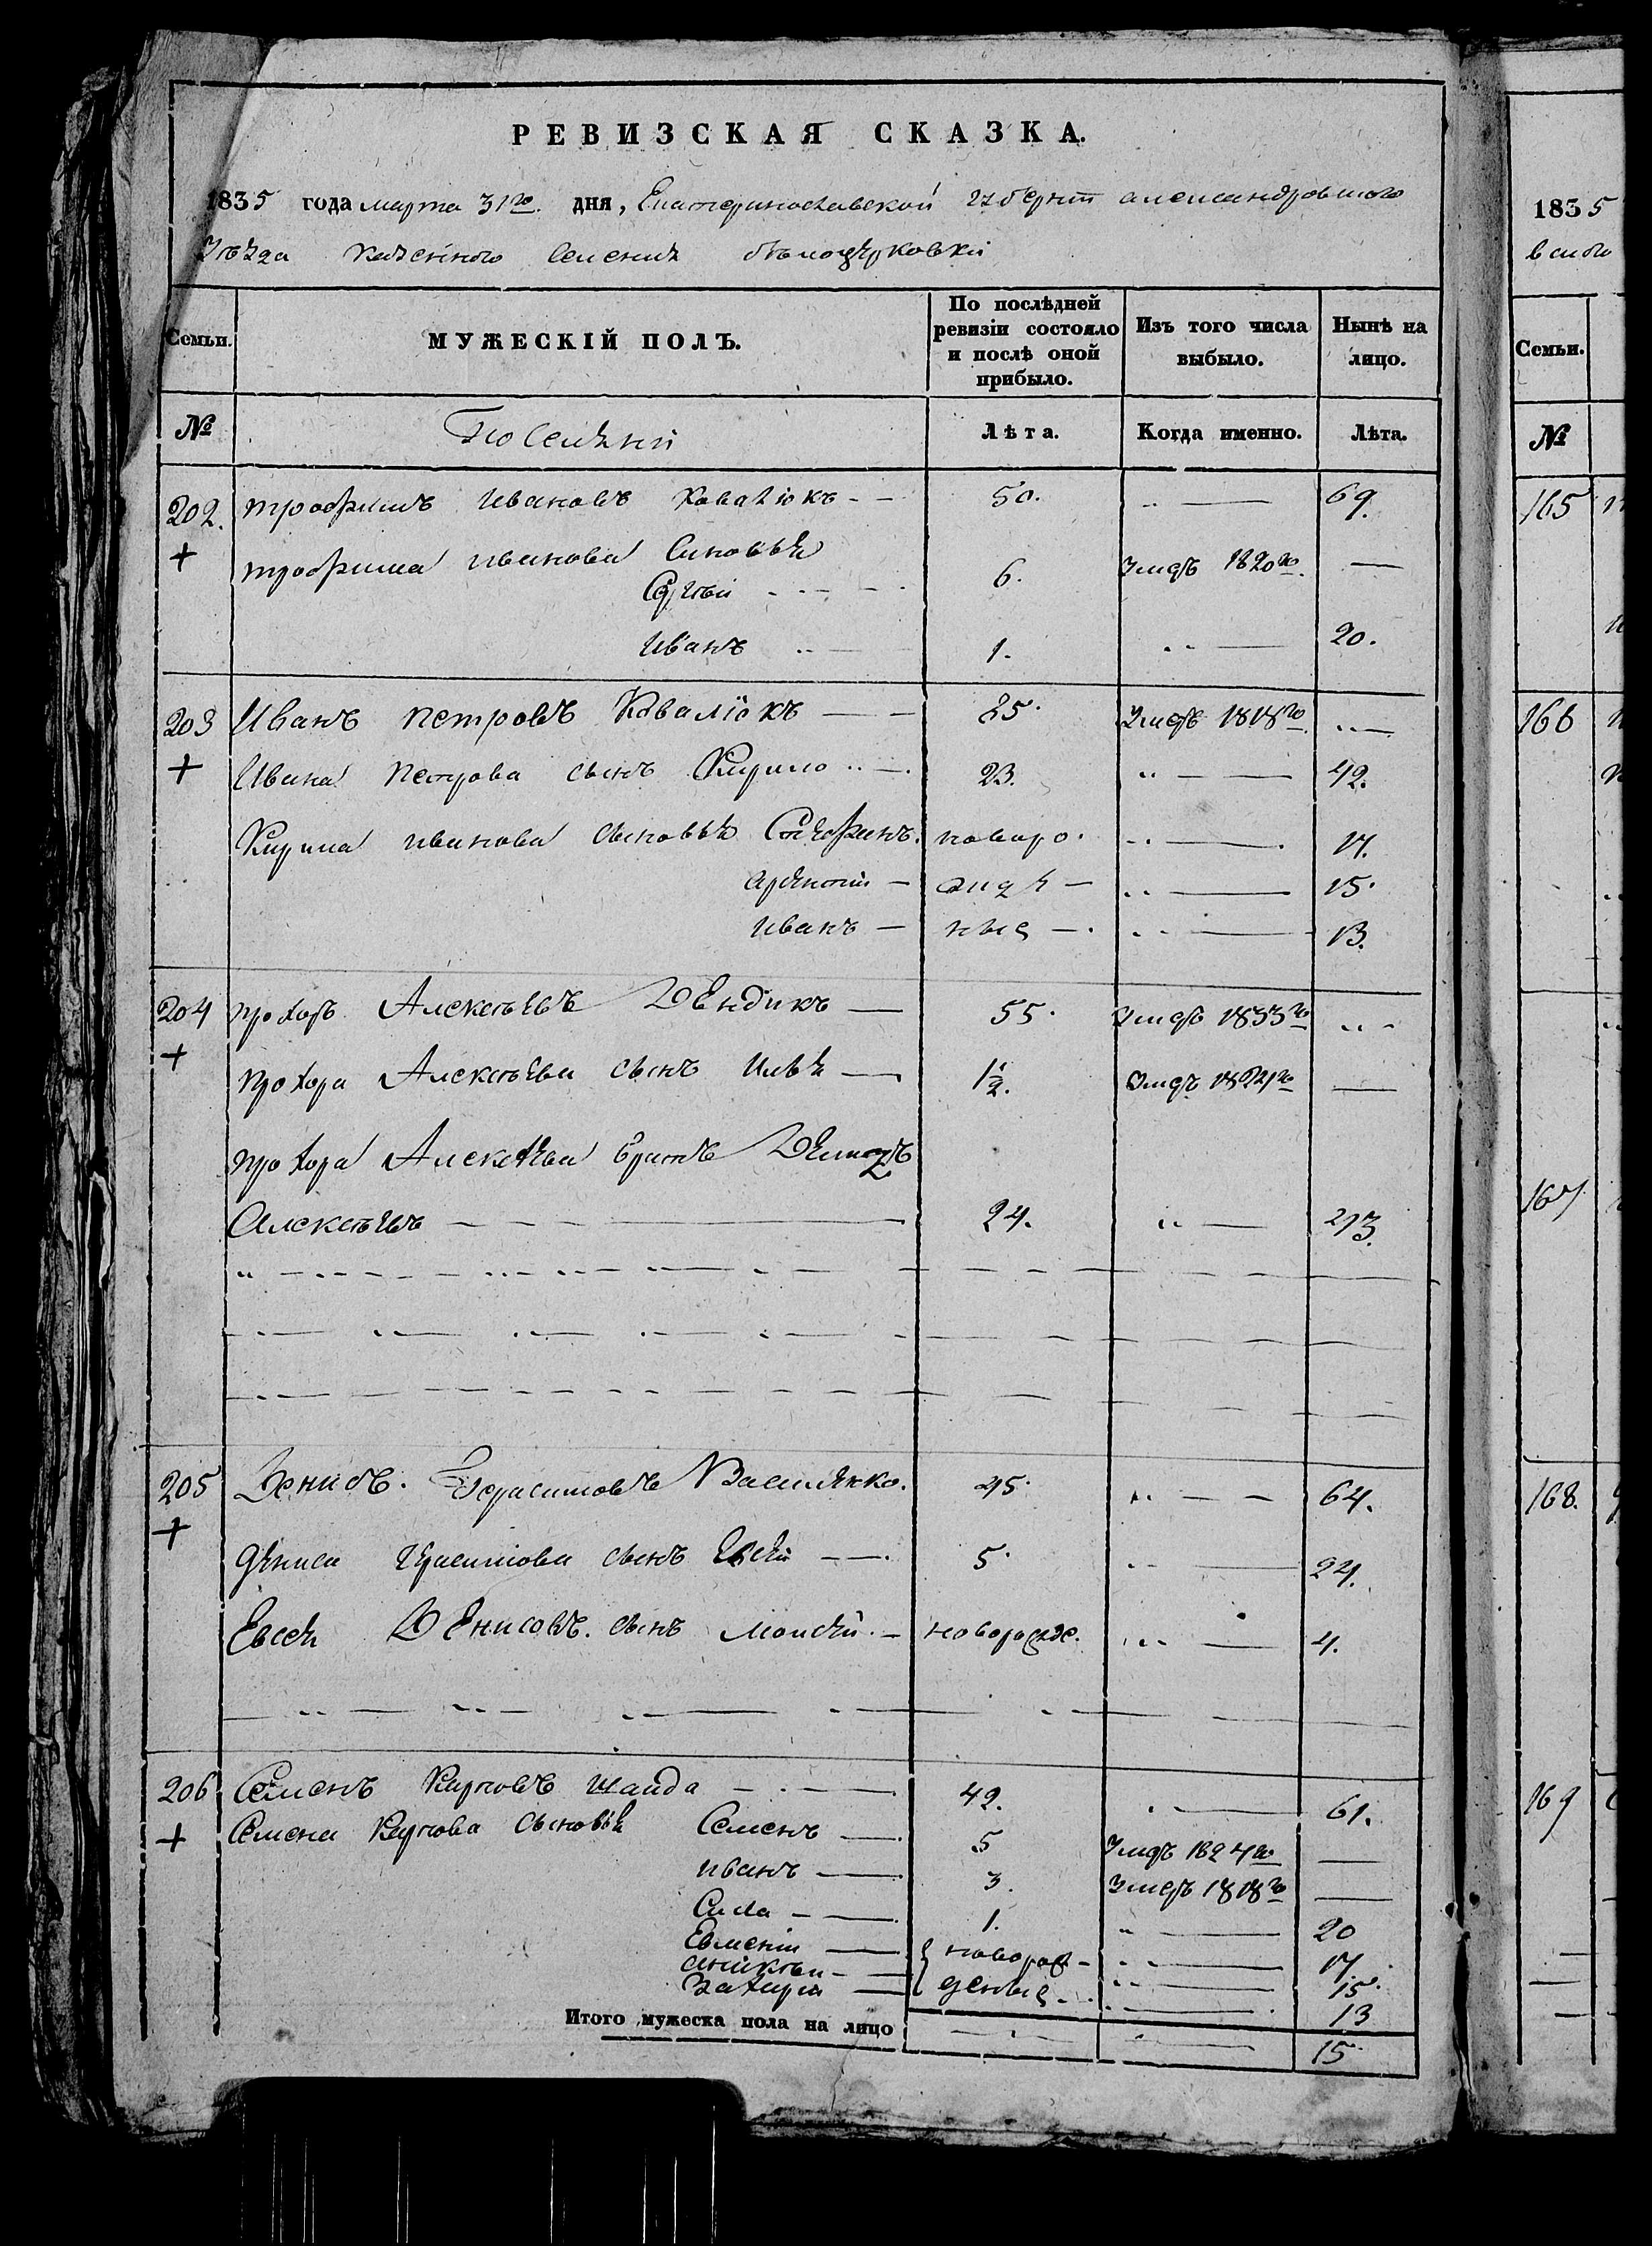 РЕВИЗСКАЯ СКАЗКА.
1835 года марта 31го. дня, Екатеринославской губерніи александровского
уѣзда казенного селенія бѣлоцерковки
Семьи. МУЖЕСКІЙ ПОЛЪ. По послѣдней ревизіи состояло и послѣ оной прибыло. Изъ того числа выбыло. Нынѣ на лицо.
№ Лѣта. Когда именно. Лѣта.
202. трофимъ Ивановъ Ковалюкъ 50. 69.
трофима иванова Синовья
Сергѣй 6. Умеръ 1820го. —
Иванъ 1. 20.
203 Иванъ петровъ Ковалюкъ Умеръ 1818го —
Ивана Петрова сынъ Кирило 23. 42.
Кирила иванова сыновья Стефанъ. новоро 17.
Арсентій — жде — 15.
Иванъ — ные — 13.
204 прохоръ Алексѣевъ Дендикъ — 55. Умеръ 1833го
прохора Алексѣева сынъ Илья — 1½. Умеръ 1821го —
прохора Алексѣева братъ
Алексѣевъ 24. 43.
205 Денисъ. Герасимовъ Василенко. 45. 64.
дениса герасимова сынъ Евсѣй 5. 24.
Евсея Денисовъ. сынъ моисей — новорожде. 4.
206 Семенъ Карповъ шаида 42. 61.
Семена Карпова сыновья Семенъ 5 Умеръ 1824го —
иванъ 3. Умеръ 1818го —
Сила 1. 20
Евмений новорож- 17
аникѣи денные 15.
Захарія 13
Итого мужеска пола на лицо 15
1835
Семьи.
№
165
166
167
168.
169